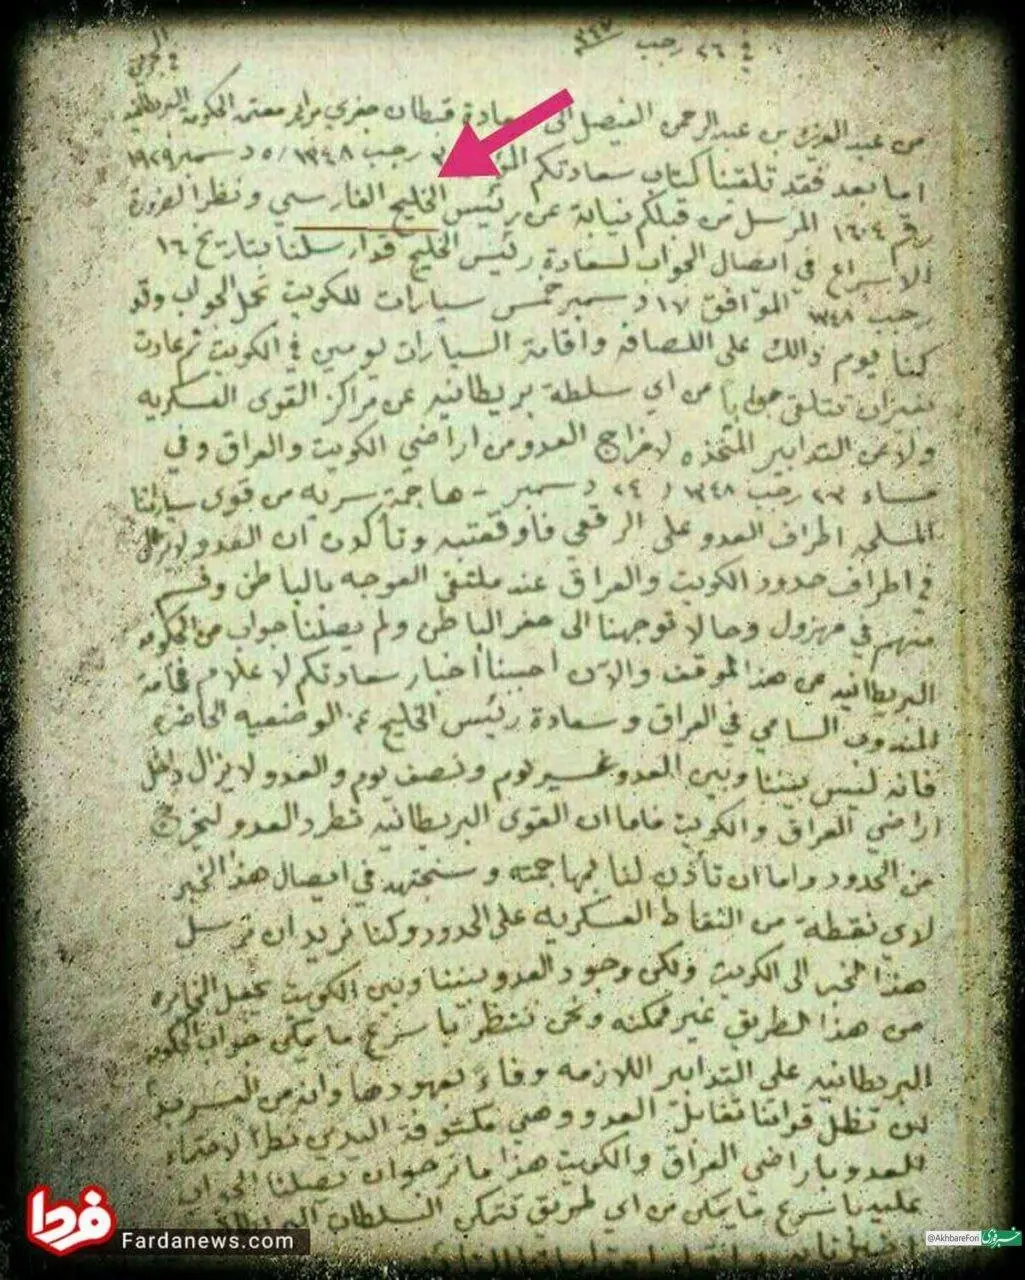 في ٢٦ رجب ١٣٤٧
من عبد العزيز بن عبد الرحمن الفيصل الى سعادة قبطان معتمد الحكومة البريطانية
اما بعد فقد تلقينا كتاب سعادتكم رجب ١٣٤٨ / ٥ دسمبر ١٩٢٩
رقم ١٦٠٤ المرسل من قبلكم نيابة عن رئيس الخليج الفارسي ونظرا لضرورة
الاسراع في ايصال الجواب لسعادة رئيس الخليج قد ارسلنا بتاريخ ١٦
رجب ١٣٤٨ الموافق ١٧ دسمبر خمس سيارات للكويت تحمل الجواب وقد
كنا يوم ذالك على اللصافه واقامة السيارات يومين في الكويت ثم عادت
بغيران نتلقى جوابا من اي سلطة بريطانيه عن مراكز القوى العسكريه
ولا عن التدابير المتخذه لاخراج العدو من اراضي الكويت والعراق وفي
مساء ٢٣ رجب ١٣٤٨ / ٢٤ دسمبر - هاجمة سريه من قوى سيارتنا
المسلحه اطراف العدو على الرقعي فاوقعتبه وتأكدن ان العدو لايزال
في اطراف حدود الكويت والعراق عند ملتقى العوجه بالباطن وقسم
منهم في مهزول وحالا توجهنا الى حفر الباطن ولم يصلنا جواب من الحكومه
البريطانيه عن هذا الموقف والآن احببنا اخبار سعادتكم لاعلام فخامة
المندوب السامي في العراق وسعادة رئيس الخليج عن الوضعيه الحاضره
فانه ليس بيننا وبين العدو غير يوم ونصف يوم والعدو لايزال داخل
اراضي العراق والكويت فاما ان القوى البريطانيه تطرد العدو ليخرج
من الحدود واما ان تأذن لنا بمهاجمته وسنجتهد في ايصال هذا الخبر
لاي نقطة من النقاط العسكريه على الحدود وكنا نريد ان نرسل
هذا الخبر الى الكويت ولكن وجود العدو بيننا وبين الكويت يجعل المخابره
من هذا الطريق غير ممكنه ونحن ننتظر باسرع ما يمكن جواب الحكومه
البريطانيه على التدابير اللازمه وفاءً بعهودها
لان تظل قواتنا تقابل العدو وهي مكتوفة اليدي نظرا لاحتماء
العدو باراضي العراق والكويت هذا ما نرجو ان يصلنا الجواب
عليه باسرع ما يمكن من اي طريق تتمكن السلطات
فردا
Fardanews.com
@AkhbareFori
خبرفوری